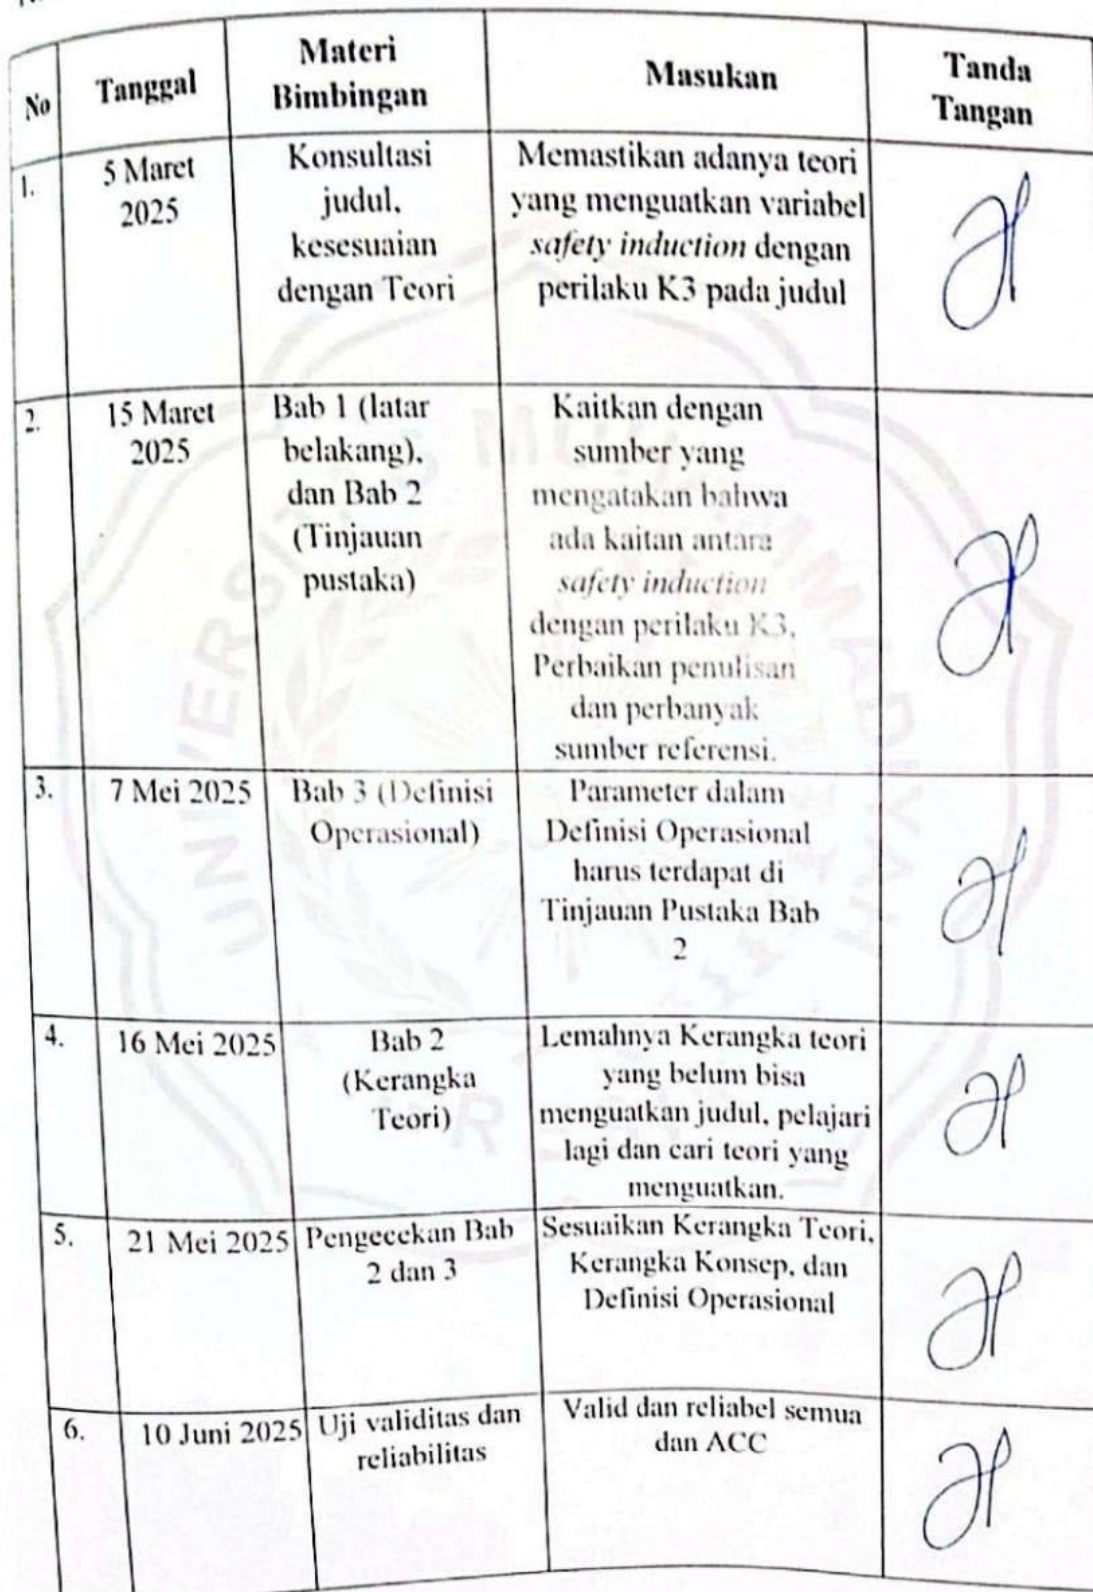 No
Tanggal
Materi
Bimbingan
Masukan
Tanda
Tangan
1.
5 Maret
2025
Konsultasi
judul,
kesesuaian
dengan Teori
Memastikan adanya teori
yang menguatkan variabel
safety induction dengan
perilaku K3 pada judul
2.
15 Maret
2025
Bab 1 (latar
belakang),
dan Bab 2
(Tinjauan
pustaka)
Kaitkan dengan
sumber yang
mengatakan bahwa
ada kaitan antara
safety induction
dengan perilaku K3,
Perbaikan penulisan
dan perbanyak
sumber referensi.
3.
7 Mei 2025
Bab 3 (Definisi
Operasional)
Parameter dalam
Definisi Operasional
harus terdapat di
Tinjauan Pustaka Bab
2
4.
16 Mei 2025
Bab 2
(Kerangka
Teori)
Lemahnya Kerangka teori
yang belum bisa
menguatkan judul, pelajari
lagi dan cari teori yang
menguatkan.
5.
21 Mei 2025
Pengecekan Bab
2 dan 3
Sesuaikan Kerangka Teori,
Kerangka Konsep, dan
Definisi Operasional
6.
10 Juni 2025
Uji validitas dan
reliabilitas
Valid dan reliabel semua
dan ACC
UNIVERSITAS MUHAMMADIYAH